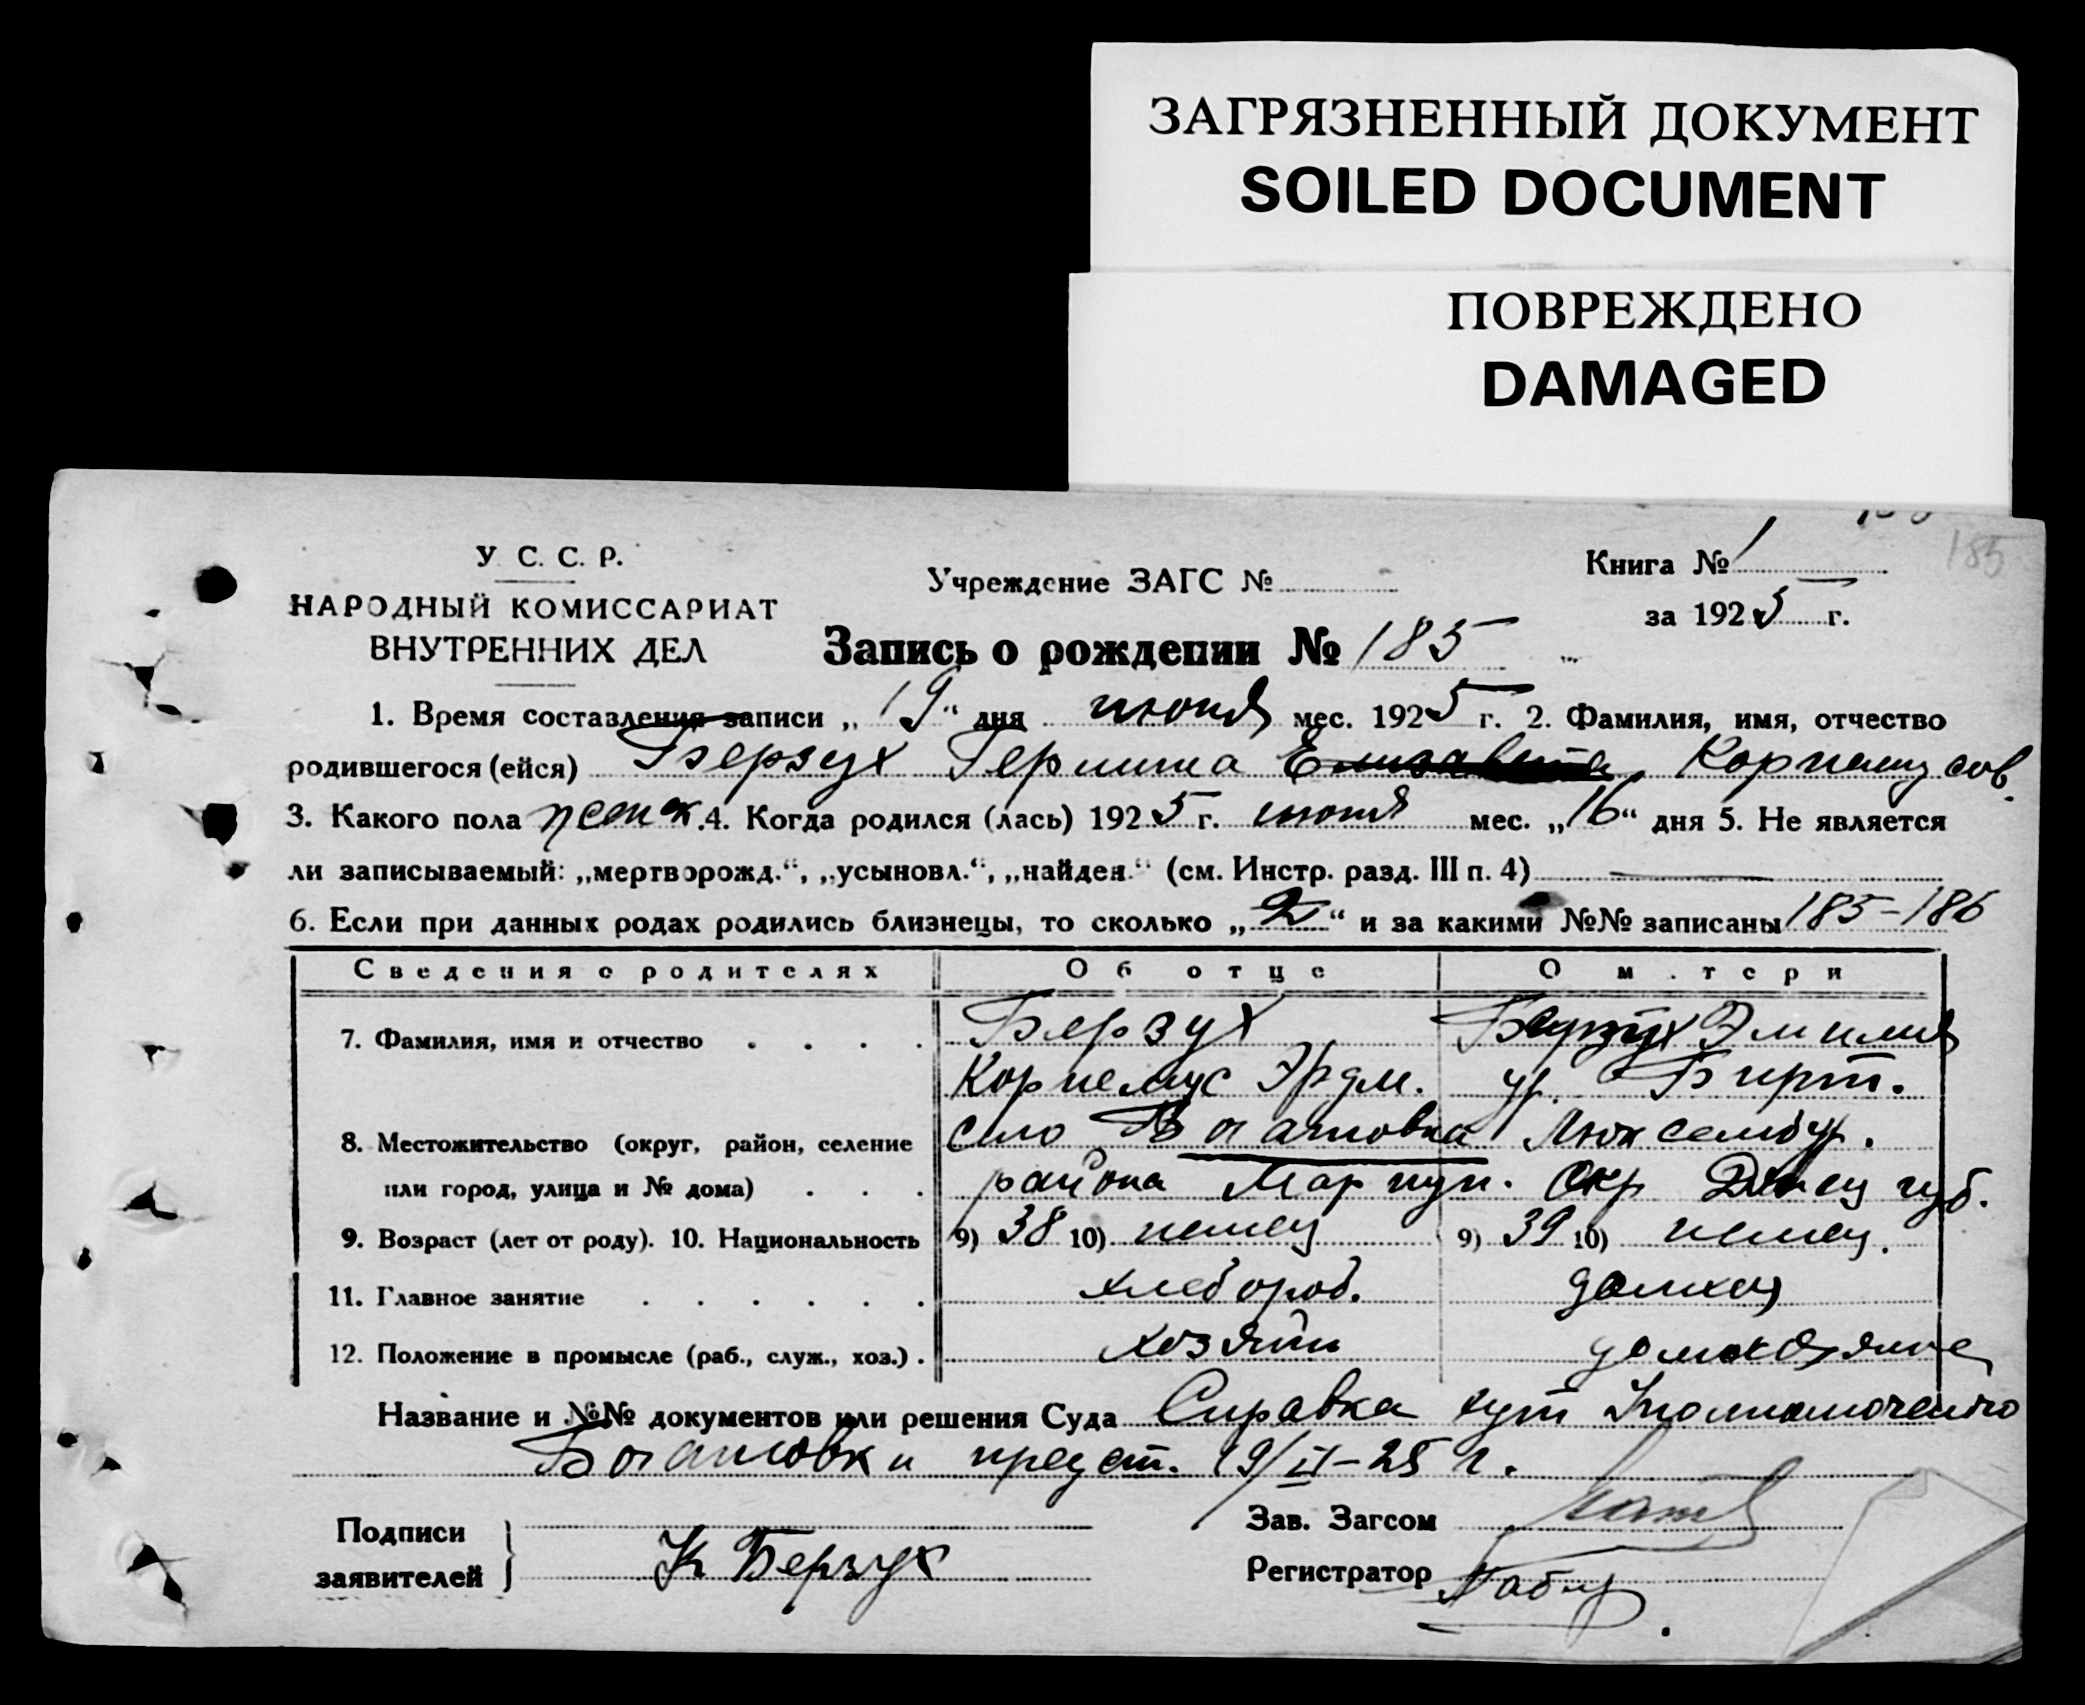 ЗАГРЯЗНЕННЫЙ ДОКУМЕНТ
SOILED DOCUMENT
ПОВРЕЖДЕНО
DAMAGED
185
У. С. С. Р.
НАРОДНЫЙ КОМИССАРИАТ
ВНУТРЕННИХ ДЕЛ
Учреждение ЗАГС №
Книга № 1
за 1925 г.
Запись о рождении № 185
1. Время составления записи „19“ дня июня мес. 1925 г. 2. Фамилия, имя, отчество
родившегося (ейся) Берзух Гермина Елизавета Корнелиусов.
3. Какого пола женск. 4. Когда родился (лась) 1925 г. июня мес. „16“ дня 5. Не является
ли записываемый: „мертворожд.“, „усыновл.“, „найден.“ (см. Инстр. разд. III п. 4)
6. Если при данных родах родились близнецы, то сколько „2“ и за какими №№ записаны 185-186
Сведения о родителях Об отце О матери
7. Фамилия, имя и отчество Берзух Берзух Эмилия
Корнелиус Эрдм. ур. Бирт.
8. Местожительство (округ, район, селение село Богатовка Люксембур.
или город, улица и № дома) района Мариуп. Окр Донец губ.
9. Возраст (лет от роду). 10. Национальность 9) 38 10) немец 9) 39 10) немец.
11. Главное занятие хлебороб. домхоз
12. Положение в промысле (раб., служ., хоз.) хозяин домохозяйне
Название и №№ документов или решения Суда Справка хут Уполномоченого
Богатовки предст. 19/VI-25 г.
Подписи заявителей К Берзух
Зав. Загсом
Регистратор